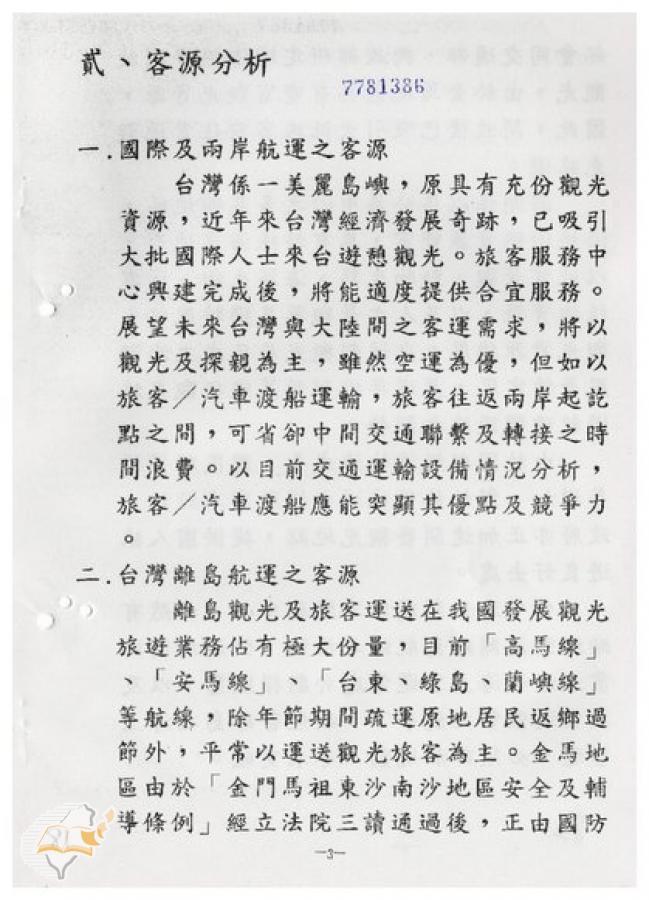 貳、客源分析
7781386
一.國際及兩岸航運之客源
台灣係一美麗島嶼，原具有充份觀光
資源，近年來台灣經濟發展奇跡，已吸引
大批國際人士來台遊憩觀光。旅客服務中
心興建完成後，將能適度提供合宜服務。
展望未來台灣與大陸間之客運需求，將以
觀光及探親為主，雖然空運為優，但如以
旅客／汽車渡船運輸，旅客往返兩岸起訖
點之間，可省卻中間交通聯繫及轉接之時
間浪費。以目前交通運輸設備情況分析，
旅客／汽車渡船應能突顯其優點及競爭力
。
二.台灣離島航運之客源
離島觀光及旅客運送在我國發展觀光
旅遊業務佔有極大份量，目前「高馬線」
、「安馬線」、「台東、綠島、蘭嶼線」
等航線，除年節期間疏運原地居民返鄉過
節外，平常以運送觀光旅客為主。金馬地
區由於「金門馬祖東沙南沙地區安全及輔
導條例」經立法院三讀通過後，正由國防
—3—